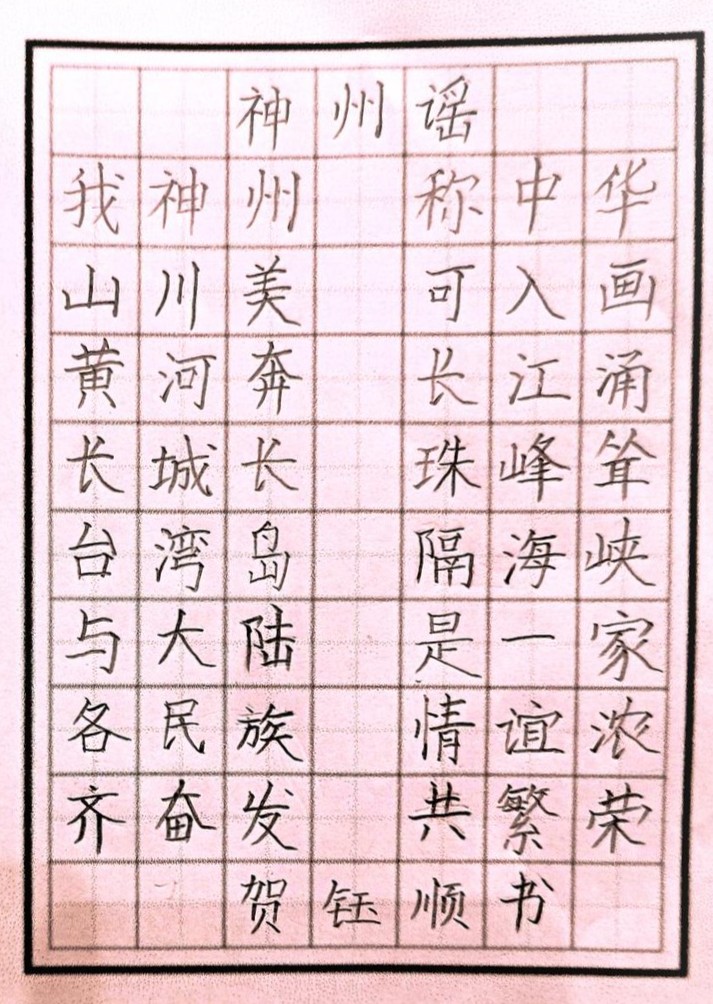 神州谣
我神州 称中华
山川美 可入画
黄河奔 长江涌
长城长 珠峰耸
台湾岛 隔海峡
与大陆 是一家
各民族 情谊浓
齐奋发 共繁荣
贺钰顺书